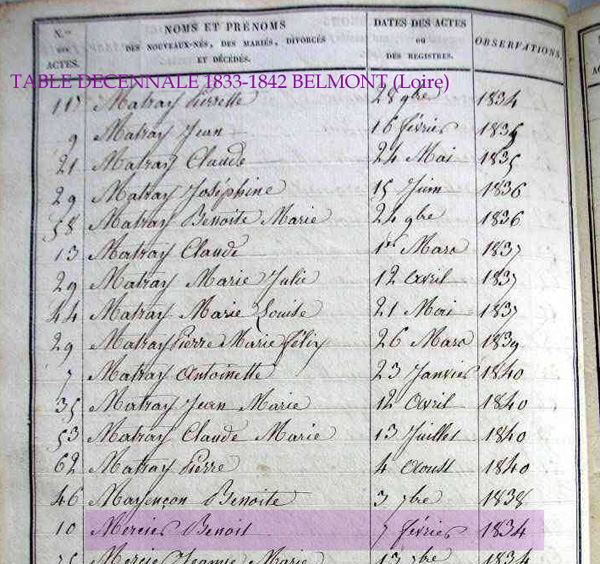 N.os DES ACTES. NOMS ET PRÉNOMS DES NOUVEAUX-NÉS, DES MARIÉS, DIVORCÉS ET DÉCÉDÉS. DATES DES ACTES OU DES REGISTRES. OBSERVATIONS.
TABLE DECENNALE 1833-1842 BELMONT (Loire)
117 Matray Pierrette 28 9bre 1834
9 Matray Jean 16 février 1835
21 Matray Claude 24 Mai 1835
29 Matray Joséphine 15 Juin 1836
58 Matray Benoite Marie 24 9bre 1836
13 Matray Claude 1er Mars 1837
29 Matray Marie Julie 12 Avril 1837
44 Matray Marie Louise 21 Mai 1837
29 Matray Pierre Marie Félix 26 Mars 1839
7 Matray Antoinette 23 Janvier 1840
35 Matray Jean Marie 12 Avril 1840
53 Matray Claude Marie 13 Juillet 1840
62 Matray Pierre 4 Aoust 1840
46 Mayençon Benoite 3 7bre 1838
10 Mercier Benoit 7 février 1834
75 Mercier Jeanne Marie 13 7bre 1834